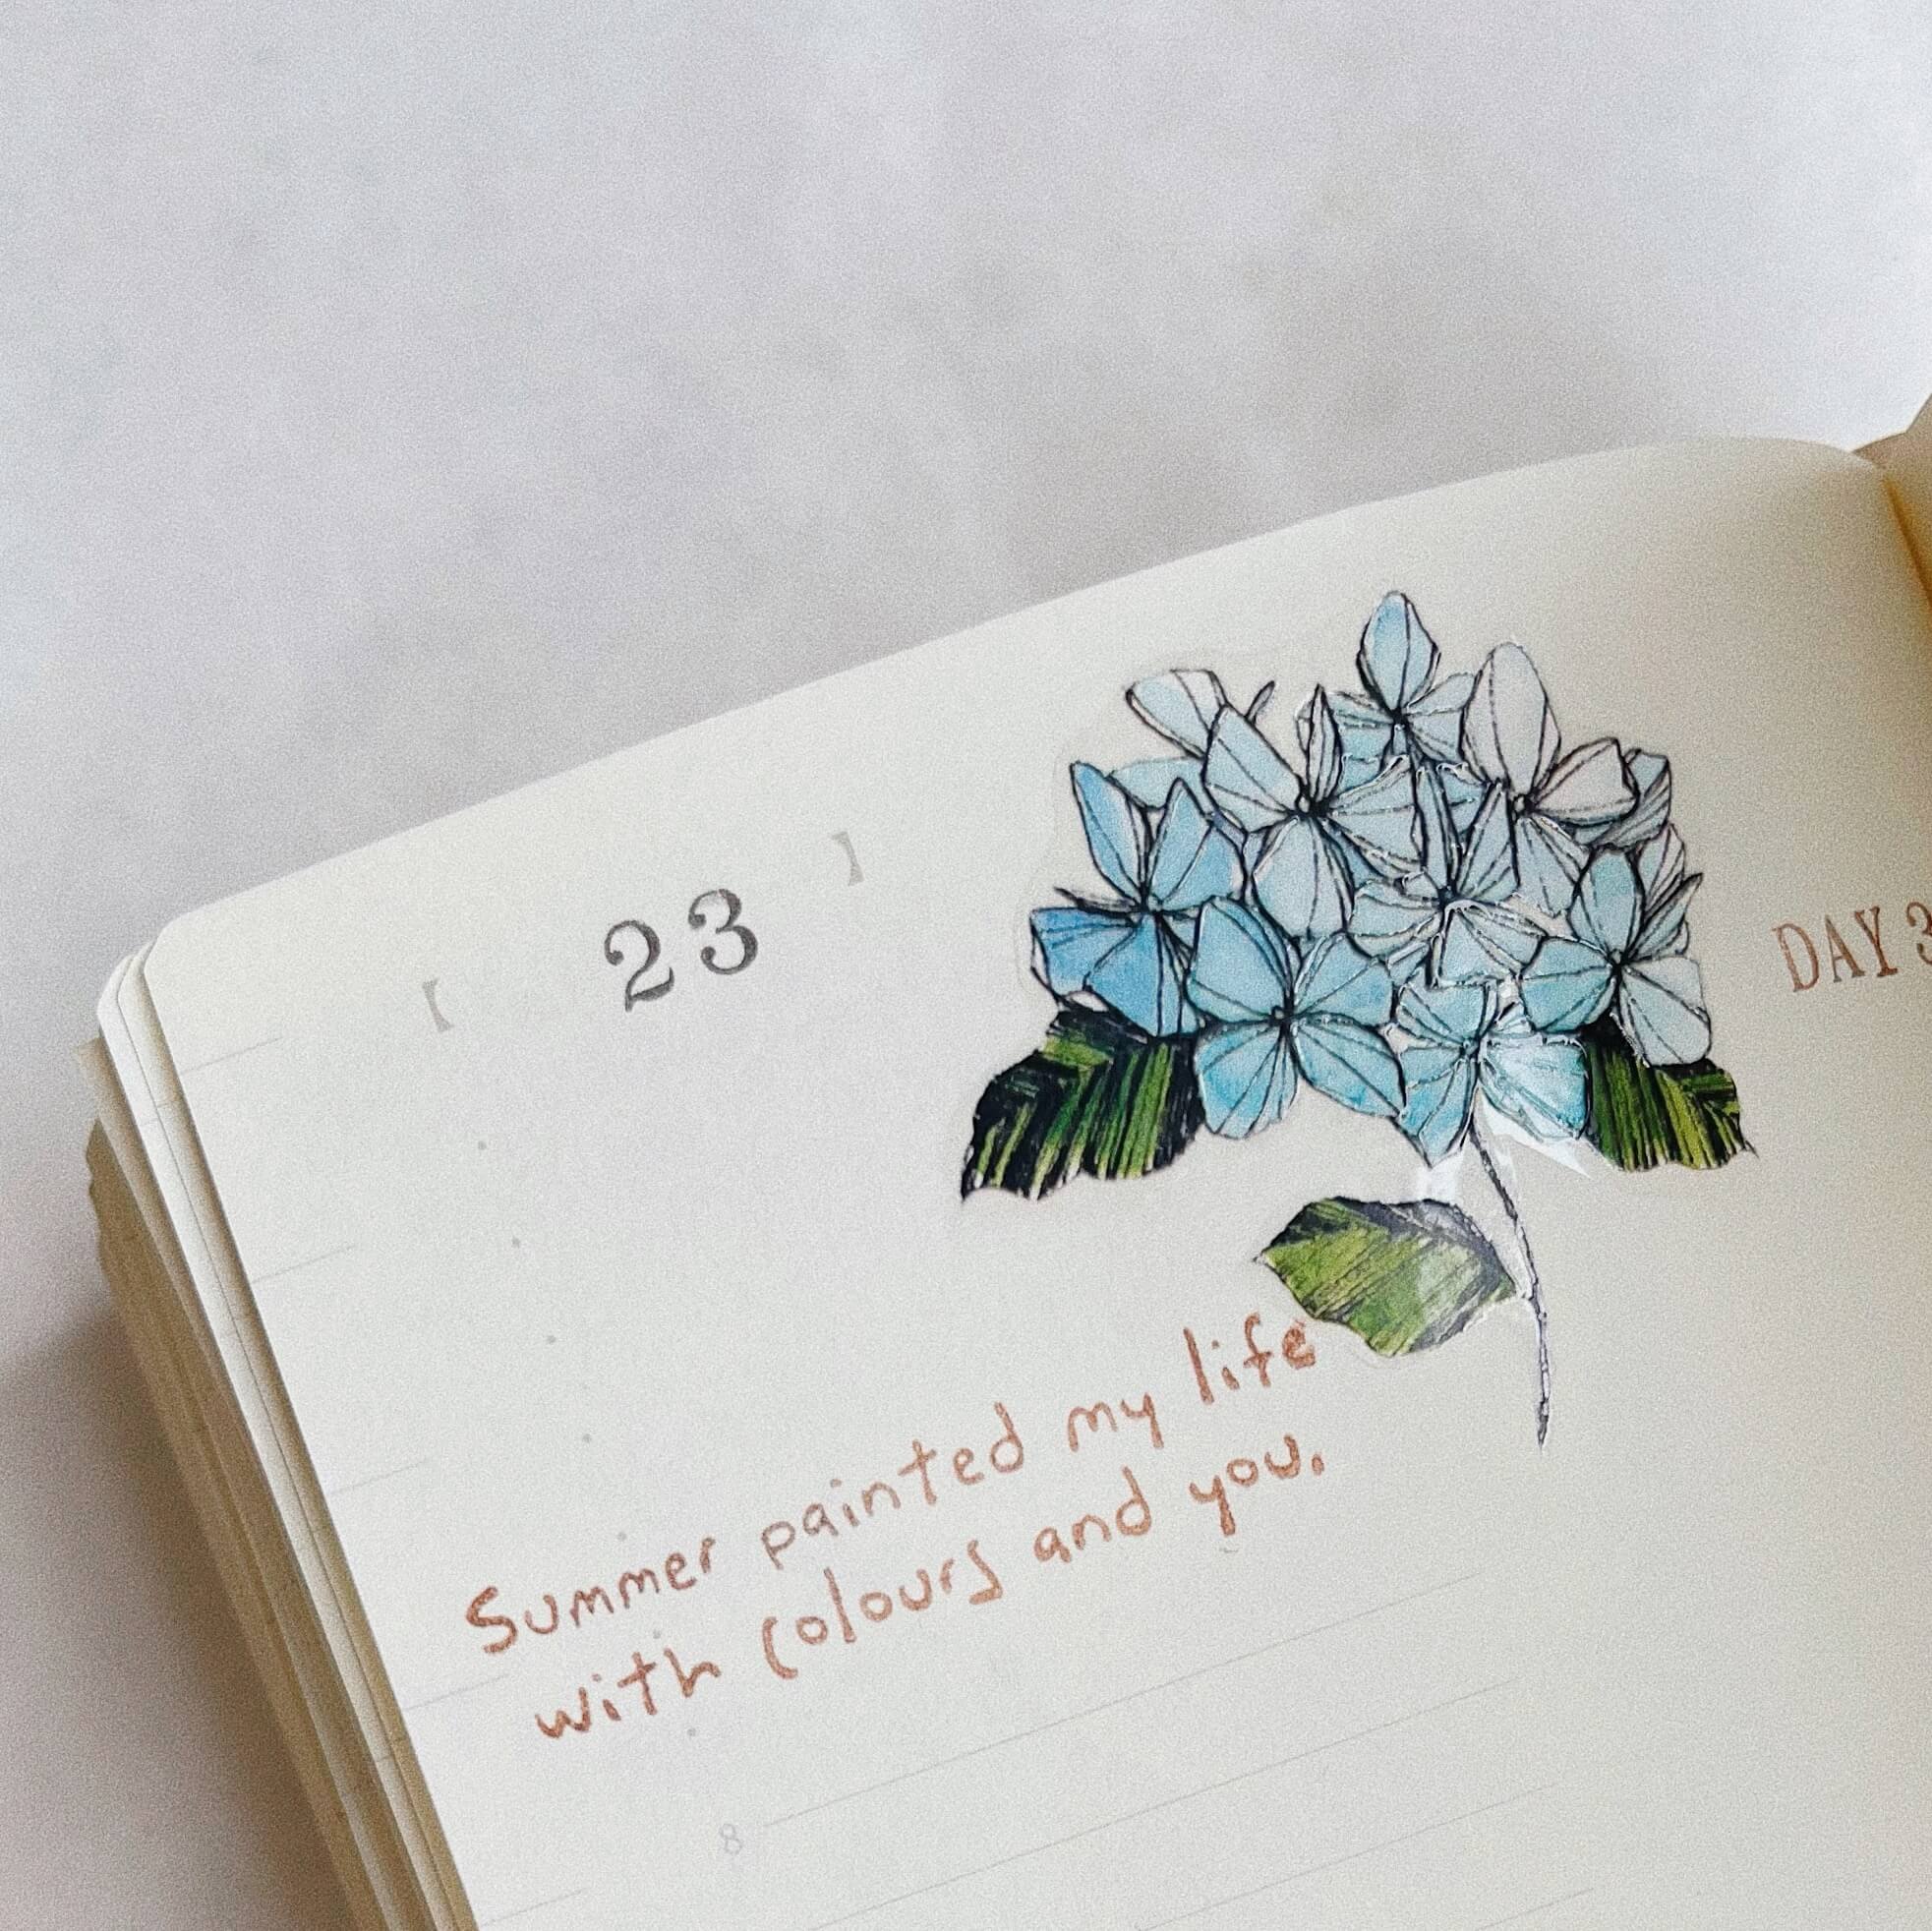 23
DAY 3
Summer painted my life
with colours and you.
8